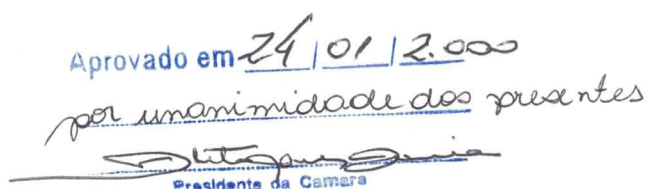 Aprovado em 24/01/2.000
por unanimidade dos presentes
Presidente da Camara